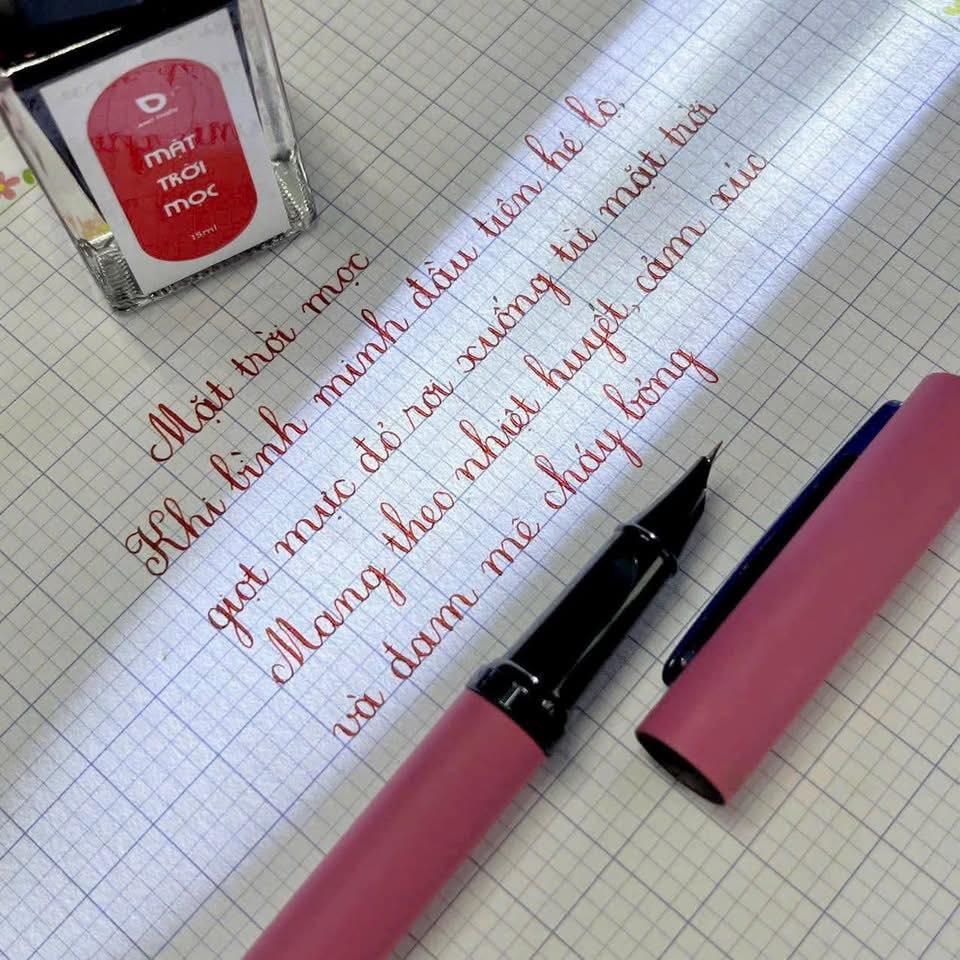 MẶT
TRỜI
MỌC
15ml
Mặt trời mọc
Khi bình minh đầu tiên hé lộ,
giọt mực đỏ rơi xuống từ mặt trời
Mang theo nhiệt huyết, cảm xúc
và đam mê cháy bỏng